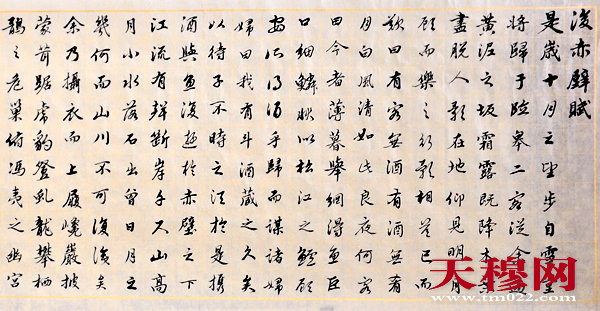 後赤壁賦
是歲十月之望步自雪堂
將歸于臨皋二客從余過
黃泥之坂霜露既降木葉
盡脫人影在地仰見明月
顧而樂之行歌相答已而
歎曰有客無酒有酒無肴
月白風清如此良夜何客
曰今者薄暮舉網得魚巨
口細鱗狀似松江之鱸顧
安所得酒乎歸而謀諸婦
婦曰我有斗酒藏之久矣
以待子不時之須於是攜
酒與魚復遊於赤壁之下
江流有聲斷岸千尺山高
月小水落石出曾日月之
幾何而山川不可復識矣
余乃攝衣而上履巉巖披
蒙茸踞虎豹登虬龍攀栖
鶻之危巢俯馮夷之幽宮
天穆网
www.tm022.com